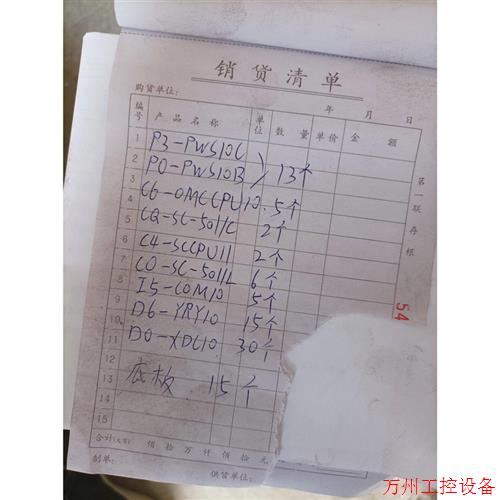 销货清单
购货单位： 年 月 日
编号 产品名称 单位 数量 单价 金额
1 P3-PWS10C
2 P0-PWS10B 13个
3 C6-OMCCPU10. 5个
4 CQ-SC-5011C 2个
5 C4-SCCPU11 2个
6 C0-SC-5011L 6个
7 I5-COM10 5个
8 D6-YRY10 15个
9 D0-XDC10 30个
10
11
12 底板. 15个
13
14
15
合计(大写) 佰 拾 万 仟 佰 拾 元
制单： 供货单位：
第一联存根
54
万州工控设备